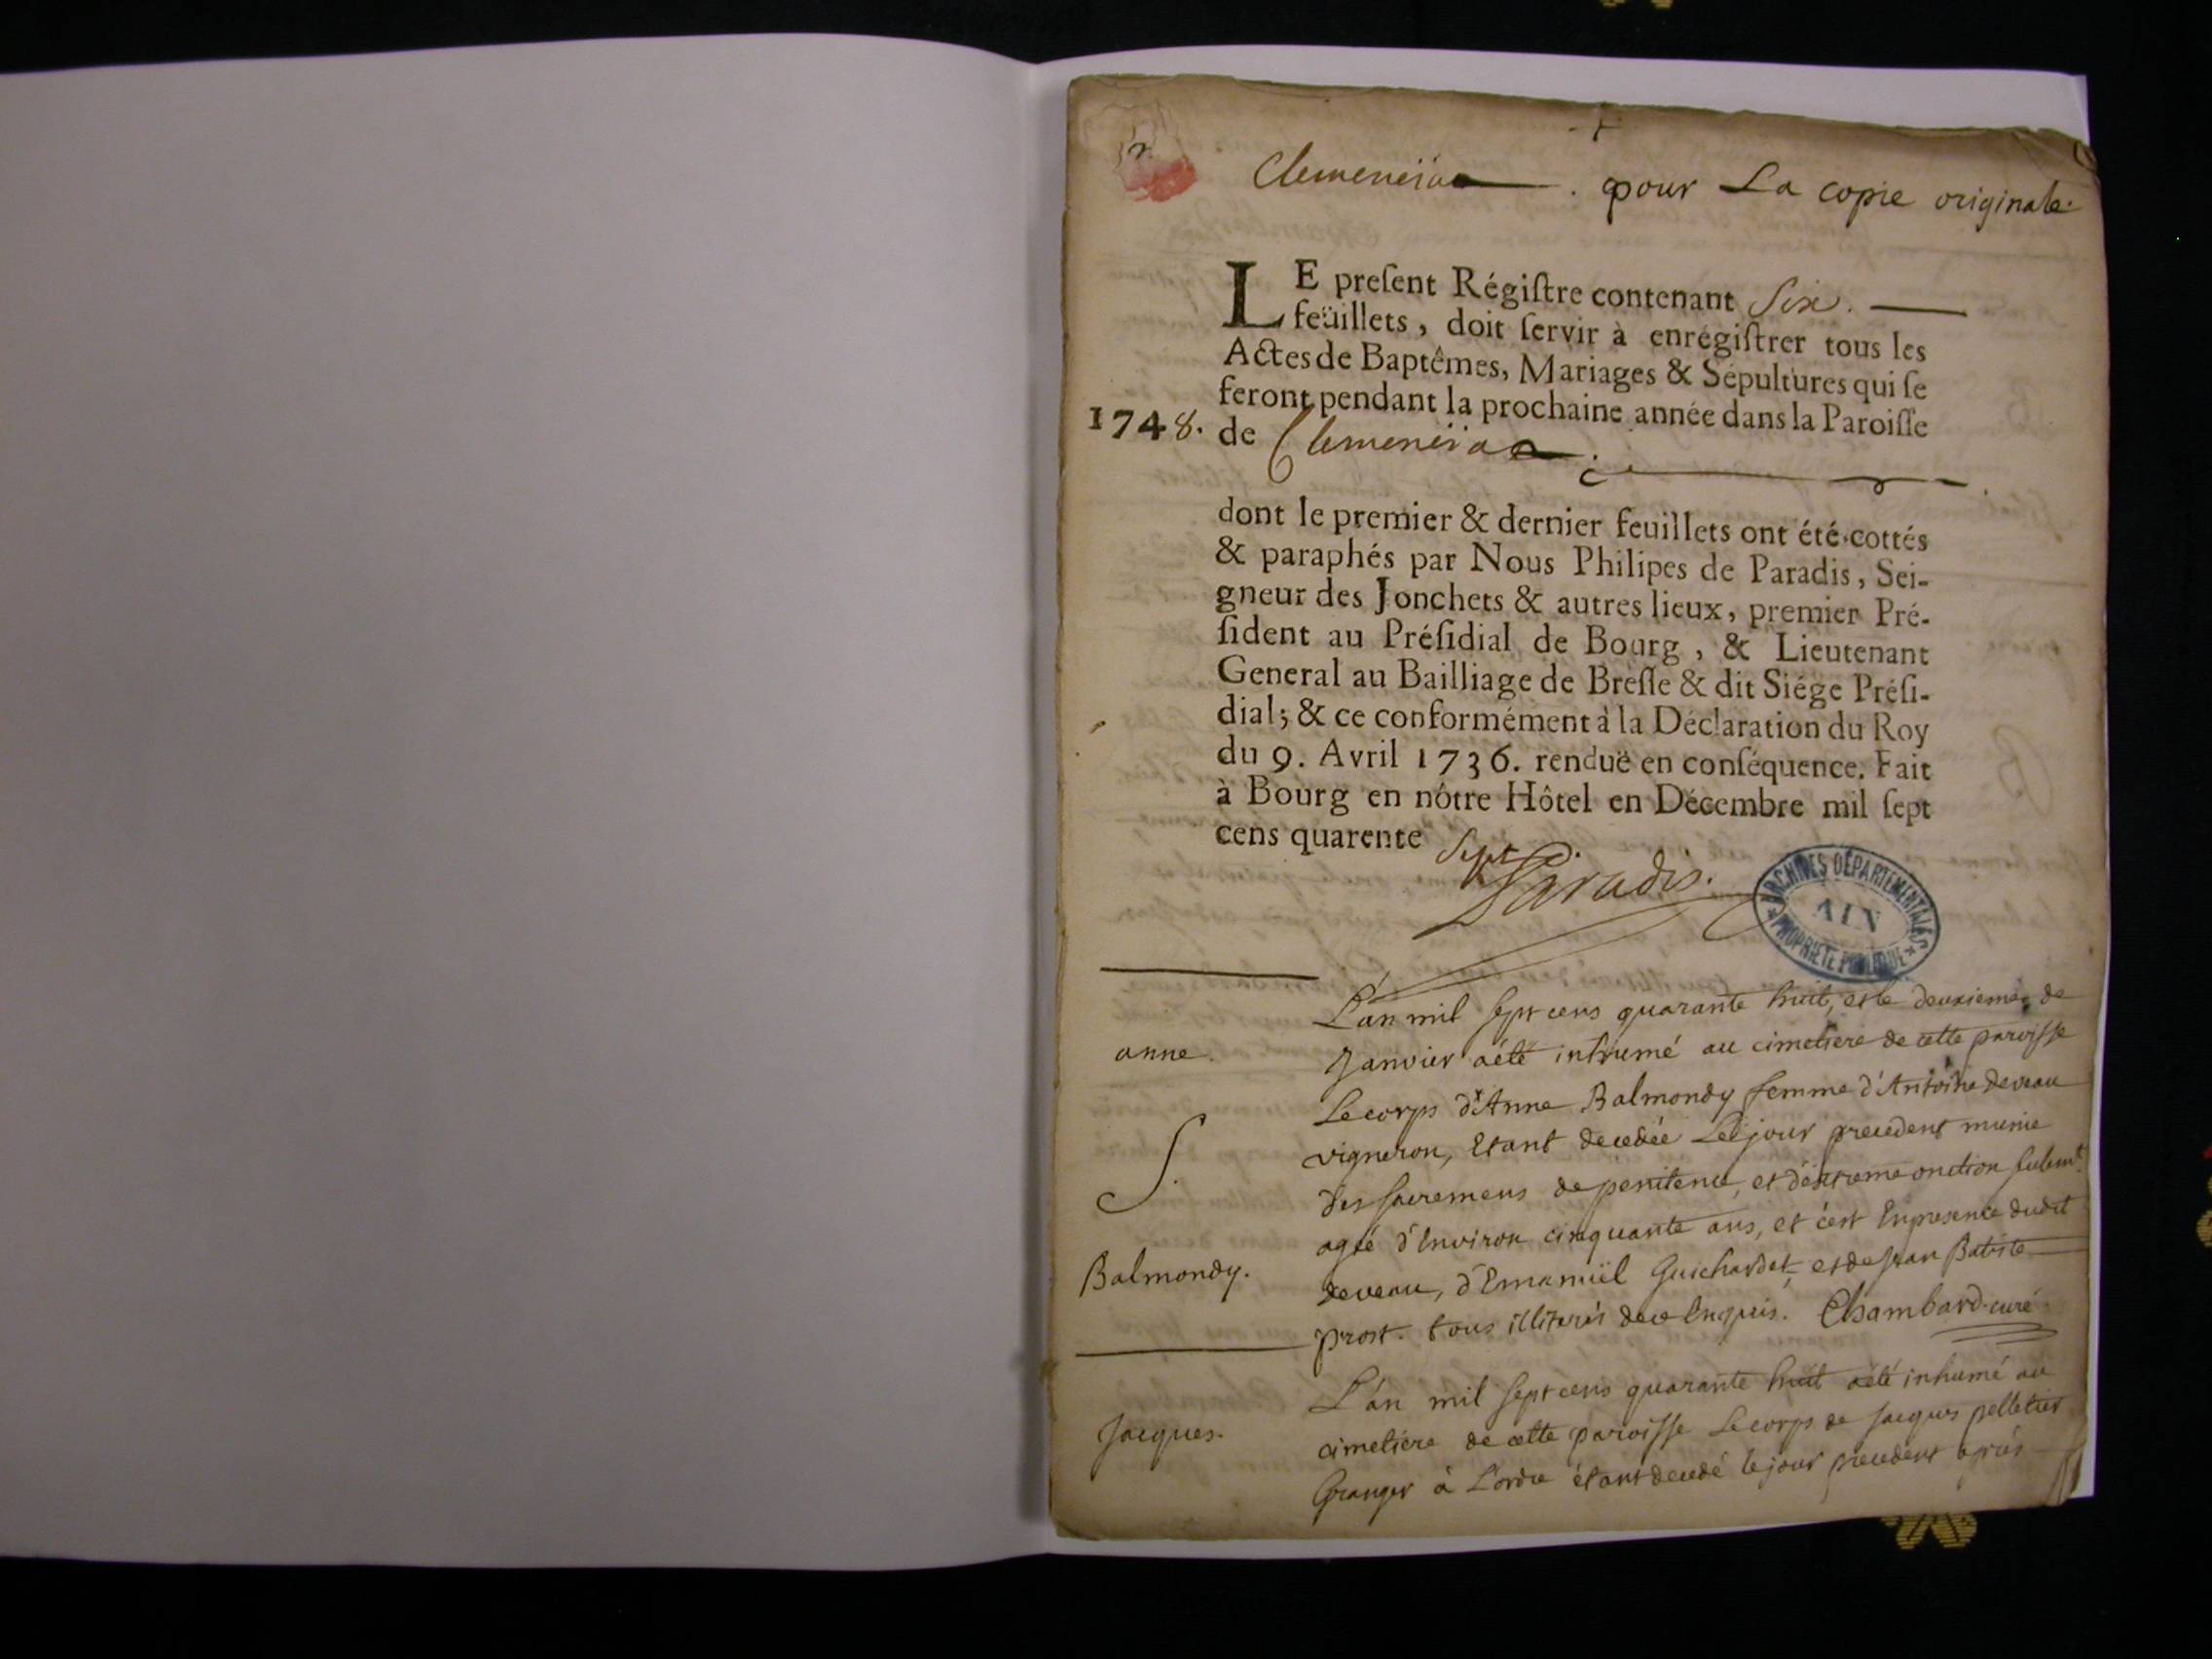 Clemencia. pour La copie originale.
LE preſent Régiſtre contenant Six.
feüillets, doit ſervir à enrégiſtrer tous les
Actes de Baptêmes, Mariages & Sépultures qui ſe
feront pendant la prochaine année dans la Paroiſſe
1748. de Clemencia
dont le premier & dernier feuillets ont été cottés
& paraphés par Nous Philipes de Paradis, Sei-
gneur des Jonchets & autres lieux, premier Pré-
ſident au Préſidial de Bourg, & Lieutenant
General au Bailliage de Breſſe & dit Siége Préſi-
dial; & ce conformément à la Déclaration du Roy
du 9. Avril 1736. renduë en conſéquence. Fait
à Bourg en nôtre Hôtel en Décembre mil ſept
cens quarente Sept
Paradis.
ARCHIVES DÉPARTEMENTALES
AIN
PROPRIÉTÉ PUBLIQUE
L'an mil sept cens quarante huit, et le deuxieme de
anne. Janvier a été inhumé au cimetiere de cette paroisse
Le corps d'Anne Balmondy femme d'Antoine deveau
vigneron, Etant decedée Le jour precedent munie
S. des sacremens de penitence, et d'extreme onction seulemt.
ageé d'Environ cinquante ans, et c'est En presence dudit
Balmondy. deveau, d'Emanuël Guichardet et de Jean Batiste
prost. tous illiterés de ce Enquis. Chambard curé
L'an mil sept cens quarante huit a été inhumé au
Jacques. cimetiere de cette paroisse Le corps de Jacques pelletier
Granger à L'ordre étant decedé le jour precedent après